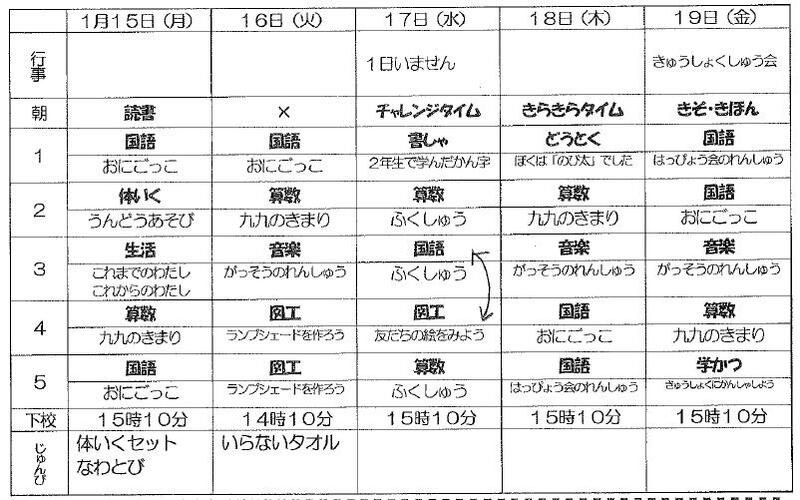 1月15日(月) 16日(火) 17日(水) 18日(木) 19日(金)
行事 1日いません きゅうしょくしゅう会
朝 読書 × チャレンジタイム きらきらタイム きそ・きほん
1 国語 国語 書しゃ どうとく 国語
おにごっこ おにごっこ 2年生で学んだかん字 ぼくは「のび太」でした はっぴょう会のれんしゅう
2 体いく 算数 算数 算数 国語
うんどうあそび 九九のきまり ふくしゅう 九九のきまり おにごっこ
3 生活 音楽 国語 音楽 音楽
これまでのわたし がっそうのれんしゅう ふくしゅう がっそうのれんしゅう がっそうのれんしゅう
これからのわたし
4 算数 図工 図工 国語 算数
九九のきまり ランプシェードを作ろう 友だちの絵をみよう おにごっこ 九九のきまり
5 国語 図工 算数 国語 学かつ
おにごっこ ランプシェードを作ろう ふくしゅう はっぴょう会のれんしゅう きゅうしょくにかんしゃしよう
下校 15時10分 14時10分 15時10分 15時10分 15時10分
じゅんび 体いくセット いらないタオル
なわとび